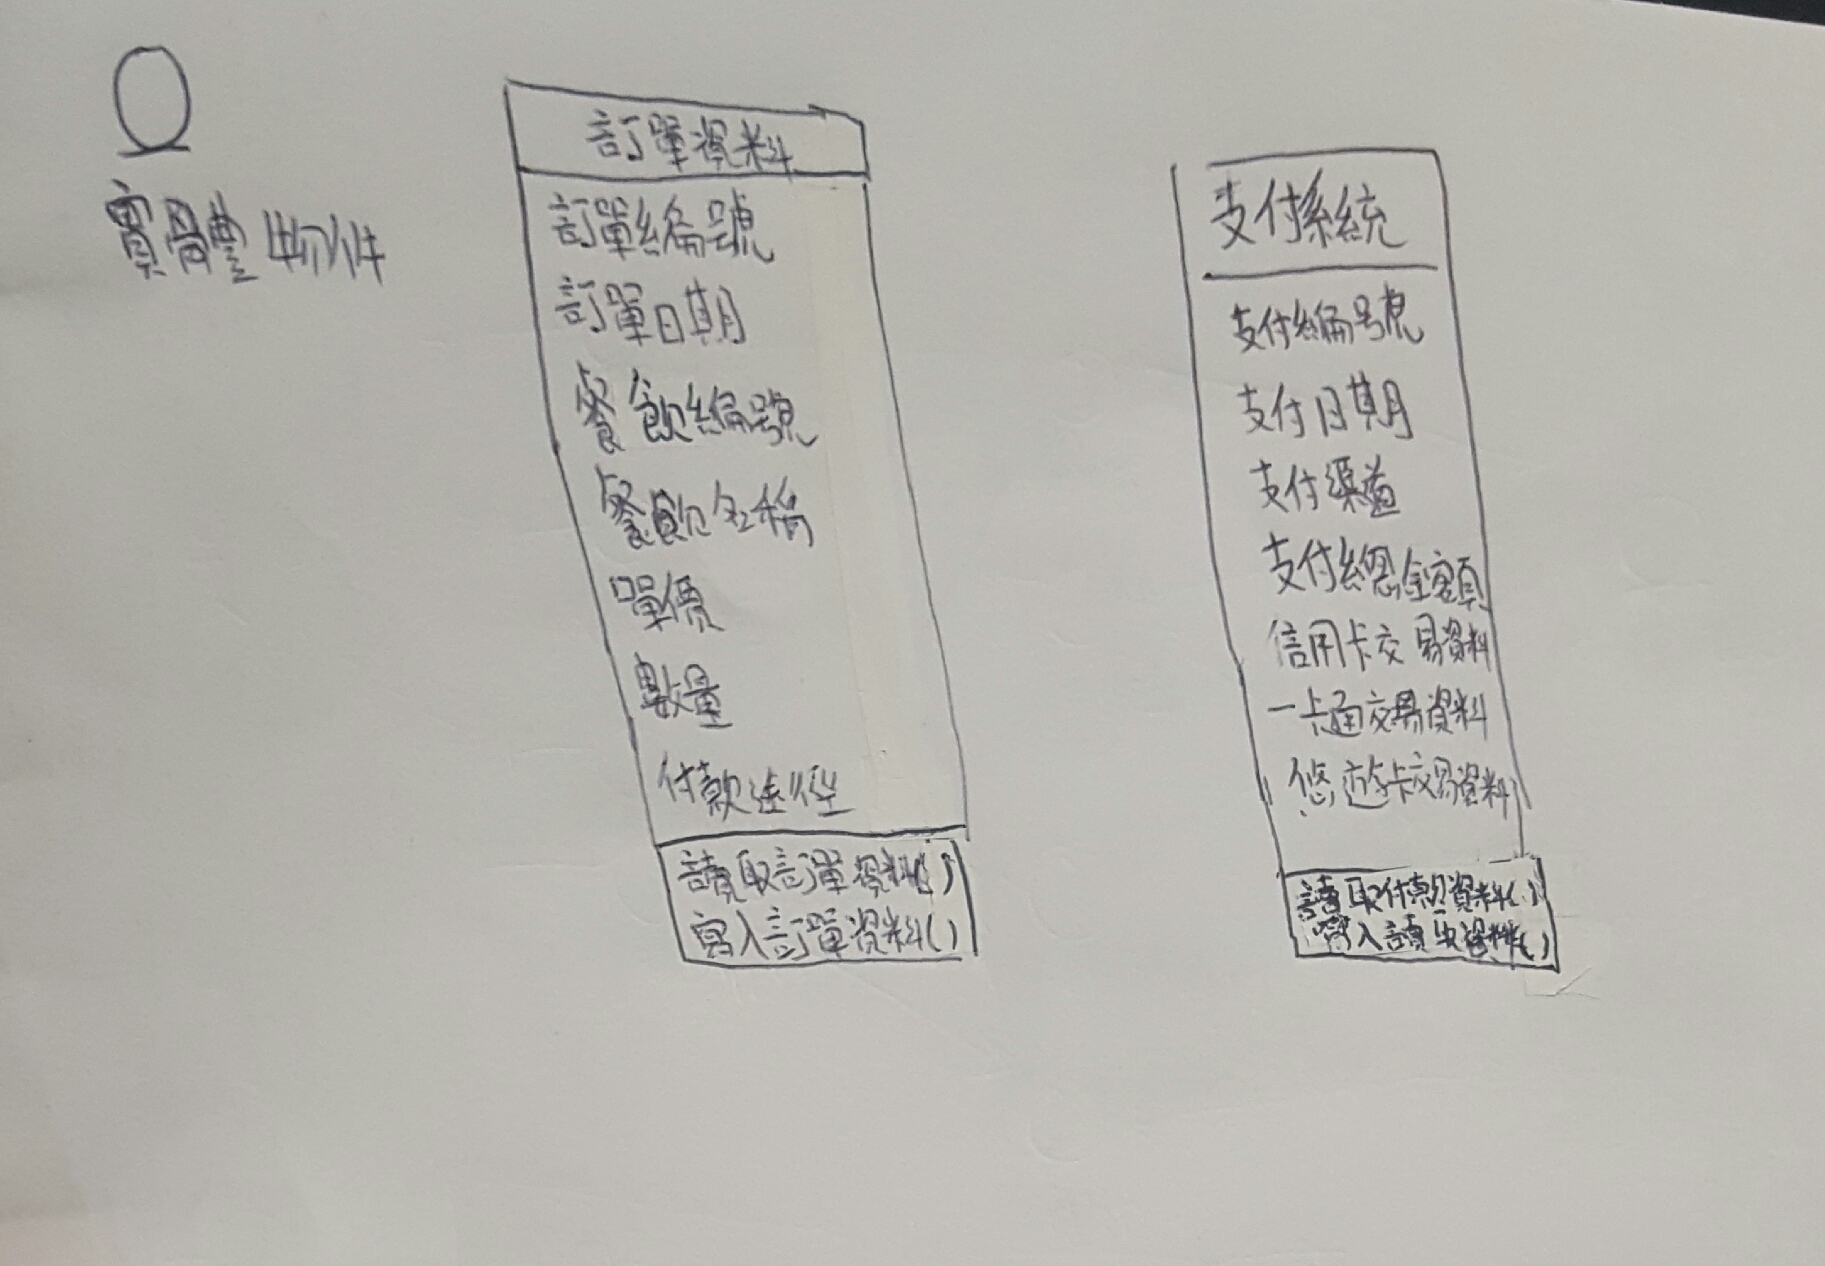 實體物件
訂單資料
訂單編號
訂單日期
餐飲編號
餐飲名稱
單價
數量
付款途徑
讀取訂單資料()
寫入訂單資料()
支付系統
支付編號
支付日期
支付渠道
支付總金額
信用卡交易資料
一卡通交易資料
悠遊卡交易資料
讀取付款資料()
寫入讀取資料()